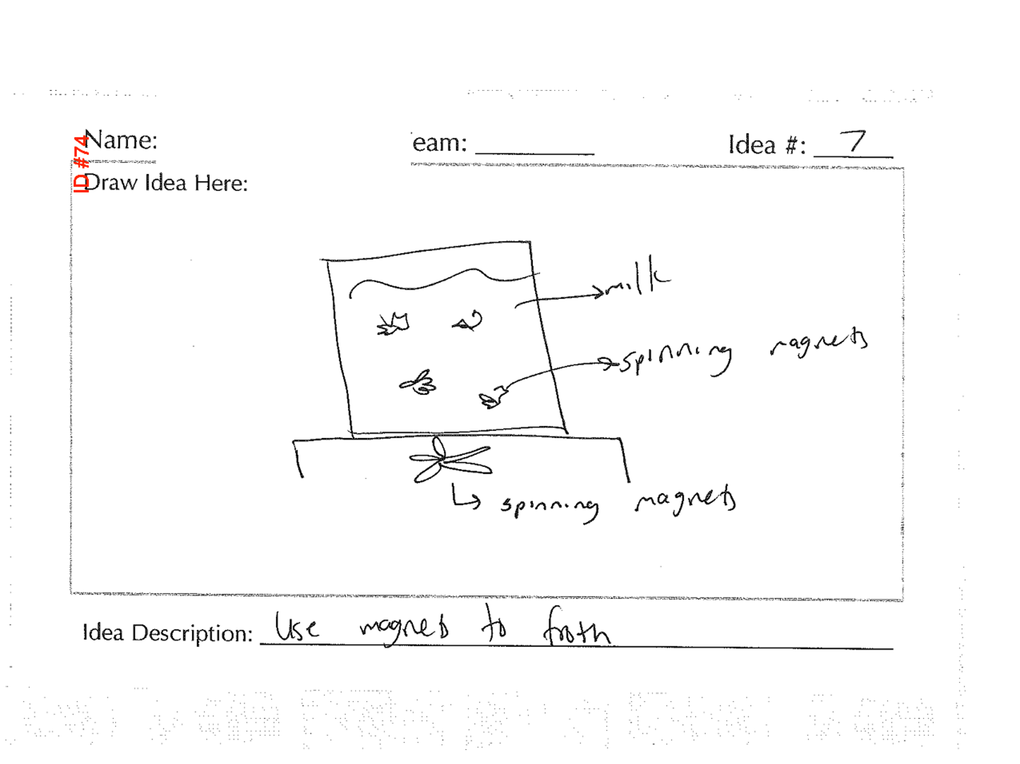 Name:
eam:
Idea #: 7
ID #74
Draw Idea Here:
milk
spinning magnets
spinning magnets
Idea Description: Use magnets to froth